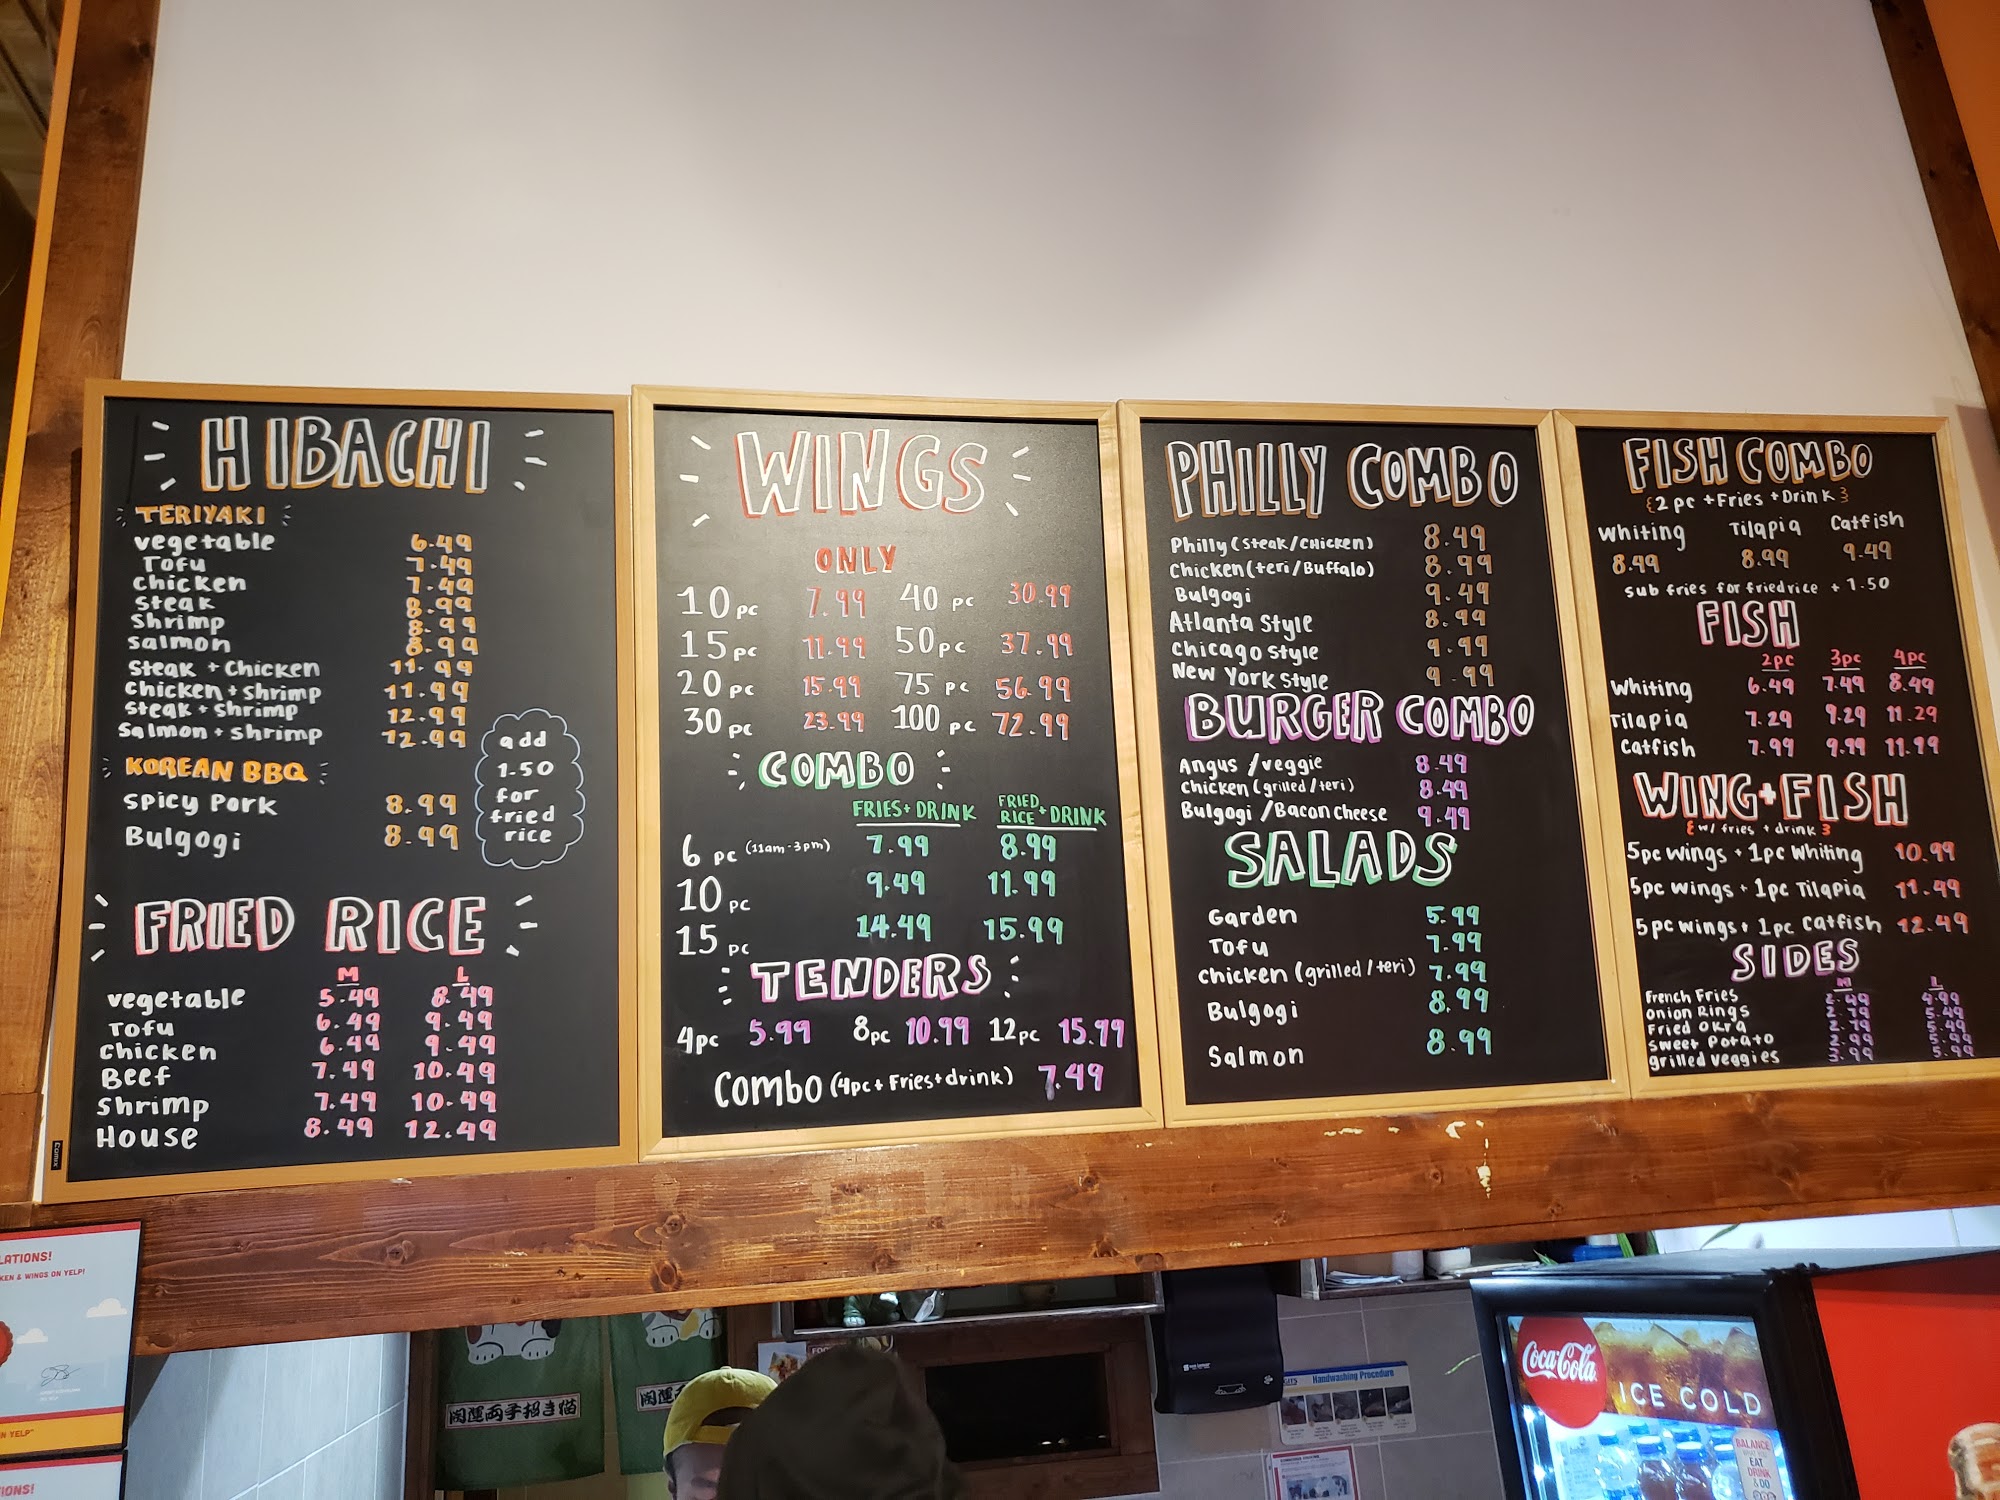 HIBACHI
TERIYAKI
vegetable 6.49
Tofu 7.49
chicken 7.49
steak 8.99
shrimp 8.99
salmon 8.99
steak + chicken 11.99
chicken + shrimp 11.99
steak + shrimp 12.99
salmon + shrimp 12.99
KOREAN BBQ
spicy pork 8.99
Bulgogi 8.99
add
1.50
for
fried
rice
FRIED RICE
M L
vegetable 5.49 8.49
Tofu 6.49 9.49
chicken 6.49 9.49
Beef 7.49 10.49
shrimp 7.49 10.49
House 8.49 12.49
WINGS
ONLY
10 pc 7.99 40 pc 30.99
15 pc 11.99 50 pc 37.99
20 pc 15.99 75 pc 56.99
30 pc 23.99 100 pc 72.99
COMBO
FRIES + DRINK FRIED RICE + DRINK
6 pc (11am-3pm) 7.99 8.99
10 pc 9.49 11.99
15 pc 14.49 15.99
TENDERS
4pc 5.99 8pc 10.99 12pc 15.99
Combo (4pc + Fries + drink) 7.49
PHILLY COMBO
Philly (steak/chicken) 8.49
Chicken (teri/Buffalo) 8.99
Bulgogi 9.49
Atlanta Style 8.99
Chicago style 9.99
New York Style 9.99
BURGER COMBO
Angus /veggie 8.49
Chicken (grilled/teri) 8.49
Bulgogi /Bacon cheese 9.49
SALADS
Garden 5.99
Tofu 7.99
chicken (grilled/teri) 7.99
Bulgogi 8.99
Salmon 8.99
FISH COMBO
{2 pc + Fries + Drink}
Whiting Tilapia Catfish
8.49 8.99 9.49
sub fries for fried rice + 1.50
FISH
2pc 3pc 4pc
Whiting 6.49 7.49 8.49
Tilapia 7.29 9.29 11.29
Catfish 7.99 9.99 11.99
WING + FISH
{w/ fries + drink}
5pc wings + 1pc Whiting 10.99
5pc wings + 1pc Tilapia 11.49
5pc wings + 1pc catfish 12.49
SIDES
M L
French Fries 2.49 4.99
onion Rings 2.79 5.49
Fried okra 2.79 5.49
sweet Potato 2.99 5.99
grilled veggies 3.99 5.99
LATIONS!
KEN & WINGS ON YELP!
N YELP"
IONS!
開運両手招き猫
開運
Handwashing Procedure
Coca-Cola
ICE COLD
BALANCE
WHAT YOU
EAT
DRINK
& DO